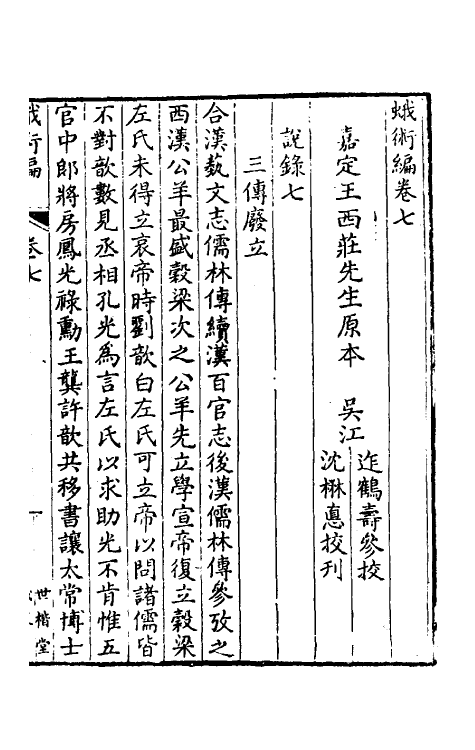 蛾術編卷七
嘉定王西莊先生原本　吳江
迮鶴壽參挍
沈楙悳挍刊
說錄七
三傳廢立
合漢藝文志儒林傳續漢百官志後漢儒林傳參攷之
西漢公羊最盛穀梁次之公羊先立學宣帝復立穀梁
左氏未得立哀帝時劉歆白左氏可立帝以問諸儒皆
不對歆數見丞相孔光為言左氏以求助光不肯惟五
官中郎將房鳳光祿勳王龔許歆共移書讓太常博士
蛾術編
卷七
一
世楷堂